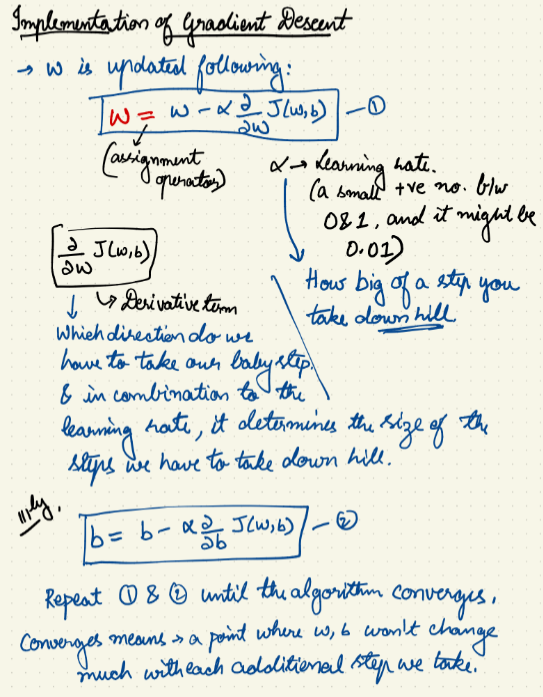 Implementation of Gradient Descent
→ w is updated following:
w = w - α ∂/∂w J(w,b) — ①
(assignment operator)
α → Learning rate.
(a small +ve no. b/w
0&1, and it might be
0.01)
How big of a step you
take down hill
∂/∂w J(w,b)
↳ Derivative term
Which direction do we
have to take our baby step.
& in combination to the
learning rate, it determines the size of the
steps we have to take down hill.
|||ly,
b = b - α ∂/∂b J(w,b) — ②
Repeat ① & ② until the algorithm converges.
Converges means → a point where w, b won't change
much with each additional step we take.